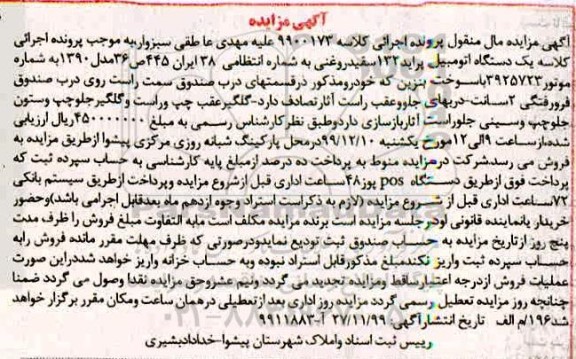 آگهی مزایده
آگهی مزایده مال منقول پرونده اجرائی کلاسه ۹۹۰۰۱۷۳ علیه مهدی عاطقی سبزوار به موجب پرونده اجرائی
کلاسه یک دستگاه اتومبیل پراید۱۳۲سفیدروغنی به شماره انتظامی ۳۸ ایران ۴۴۵ص۳۶مدل۱۳۹۰به شماره
موتور۳۹۲۵۷۲۳باسوخت بنزین که خودرومذکور درقسمتهای درب صندوق سمت راست روی درب صندوق
فرورفتگی ۲سانت-دربهای جلووعقب راست آثارتصادف دارد-گلگیرعقب چپ وراست وگلگیرجلوچپ وستون
جلوچپ وسینی جلوراست آثاربازسازی داردوطبق نظرکارشناس رسمی به مبلغ ۴۵۰۰۰۰۰۰۰ریال ارزیابی
شده‌ازساعت ۹الی۱۲مورخ یکشنبه ۹۹/۱۲/۱۰درمحل پارکینگ شبانه روزی مرکزی پیشوا ازطریق مزایده به
فروش می رسدشرکت درمزایده منوط به پرداخت ده درصد ازمبلغ پایه کارشناسی به حساب سپرده ثبت که
پرداخت فوق ازطریق دستگاه pos پوز۴۸ساعت اداری قبل ازشروع مزایده وپرداخت ازطریق سیستم بانکی
۷۲ساعت اداری قبل از شروع مزایده (لازم به ذکراست استراد وجوه ازدهم ماه بعدقابل اجرامی باشد)وحضور
خریدار یانماینده قانونی اودرجلسه مزایده است برنده مزایده مکلف است مابه التفاوت مبلغ فروش را ظرف مدت
پنج روز ازتاریخ مزایده به حساب صندوق ثبت تودیع نمایدودرصورتی که ظرف مهلت مقرر مانده فروش رابه
حساب سپرده ثبت واریز نکندمبلغ مذکورقابل استراد نبوده وبه حساب خزانه واریز خواهد شددراین صورت
عملیات فروش ازدرجه اعتبارساقط ومزایده تجدید می گردد ولیم عشروحق مزایده نقدا وصول می گردد ضمنا
چنانچه روز مزایده تعطیل رسمی گردد مزایده روز اداری بعد ازتعطیلی درهمان ساعت ومکان مقرر برگزار خواهد
شد۱۹۶/م الف تاریخ انتشارآگهی ۲۷/۱۱/۹۹ آ-۹۹۱۱۸۸۳
رییس ثبت اسناد واملاک شهرستان پیشوا-خدادادبشیری